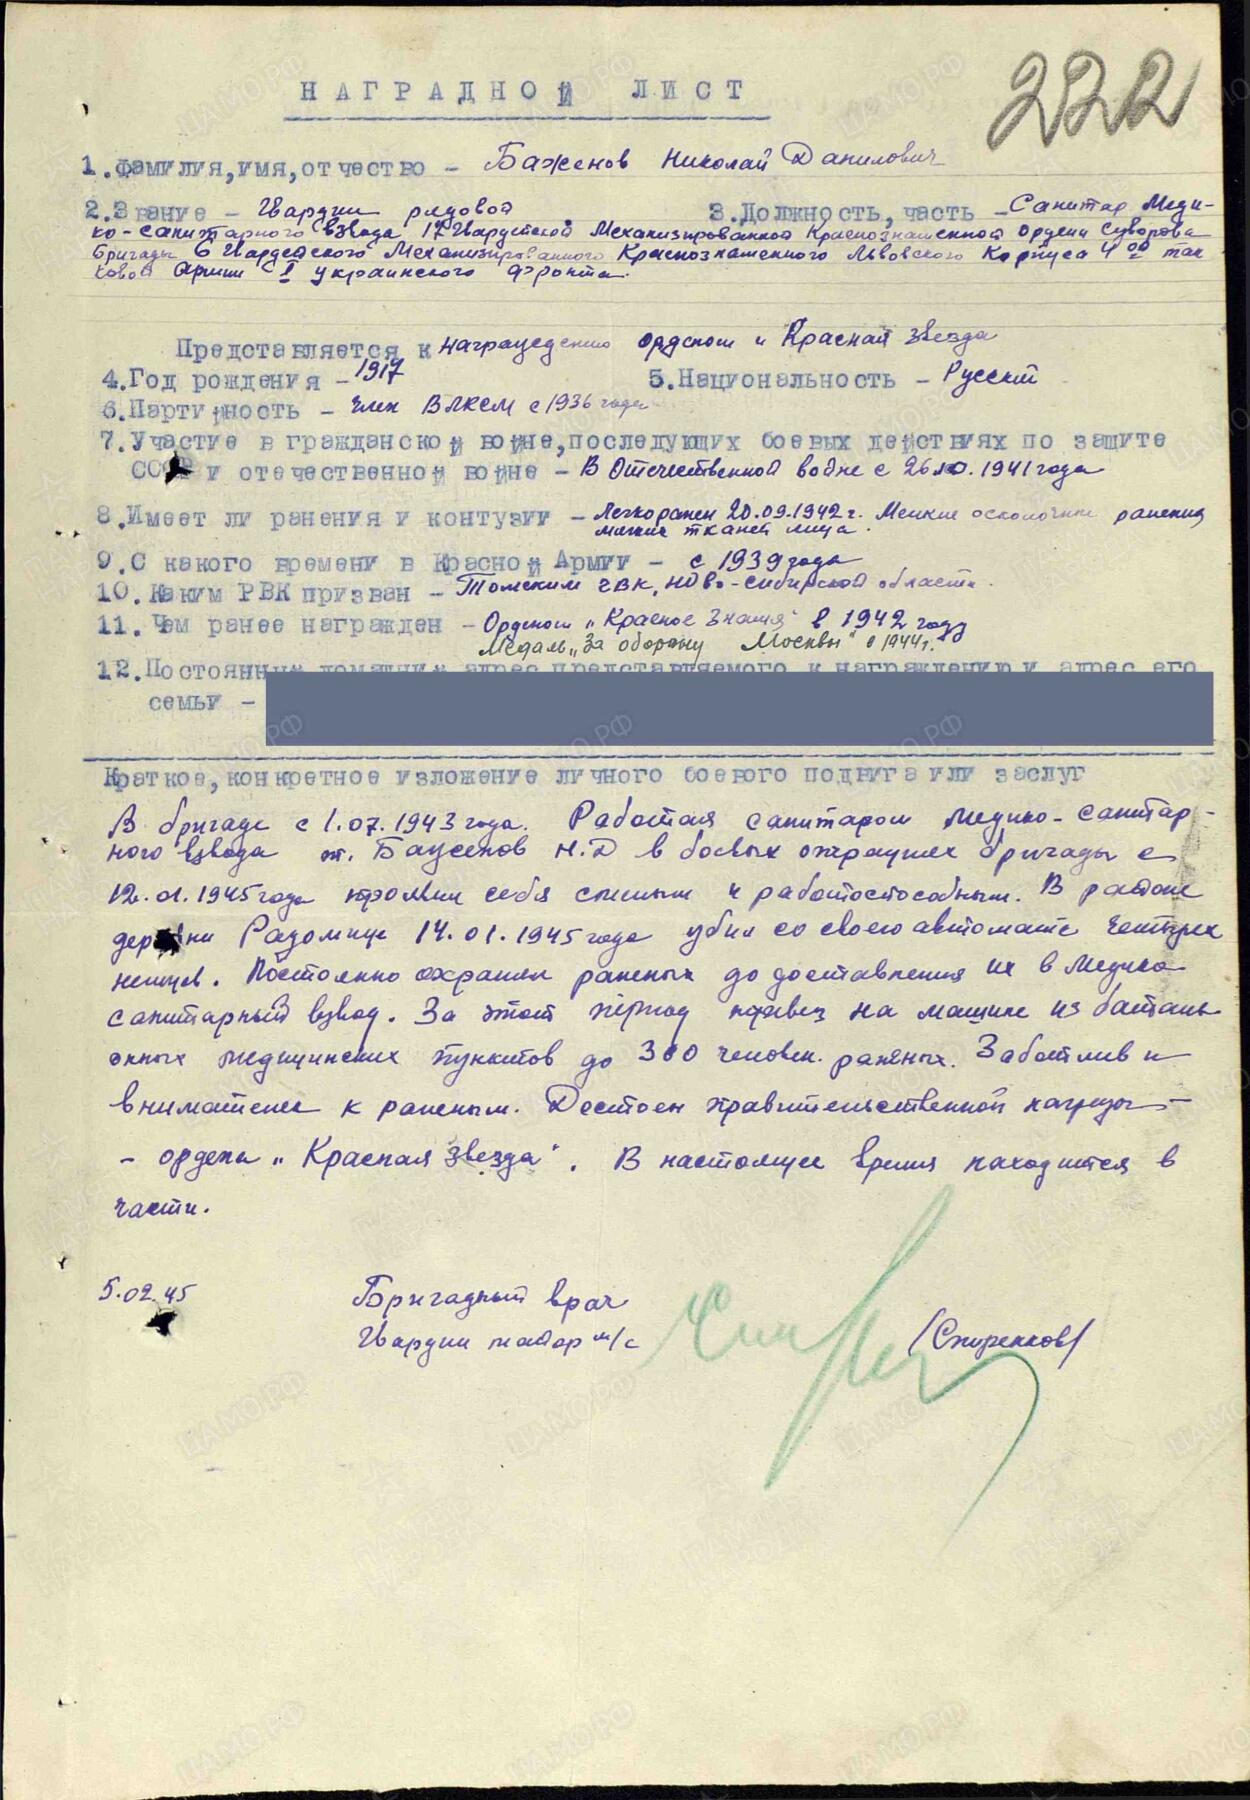 222
НАГРАДНОЙ ЛИСТ
1. Фамилия, имя, отчество – Баженов Николай Данилович
2. Звание – Гвардии рядовой 3. Должность, часть – Санитар Меди-
ко-санитарного взвода 17 Гвардейской Механизированной Краснознаменной ордена Суворова
Бригады 6 Гвардейского Механизированного Краснознаменного Львовского Корпуса 4ой тан
ковой Армии I Украинского фронта.
Представляется к награждению орденом "Красная звезда
4. Год рождения – 1917 5. Национальность – Русский
6. Партийность – член ВЛКСМ с 1936 года
7. Участие в гражданской войне, последующих боевых действиях по защите
СССР и отечественной войне – В Отечественной войне с 26.10.1941 года
8. Имеет ли ранения и контузии – Легкоранен 20.09.1942 г. Мелкие осколочные ранения
мягких тканей лица.
9. С какого времени в Красной Армии – с 1939 года
10. Каким РВК призван – Томским ГВК, Ново-сибирской области.
11. Чем ранее награжден – Орденом "Красное Знамя" в 1942 году
Медаль "За оборону Москвы" в 1944 г.
12. Постоянный домашний адрес представляемого к награждению и адрес его
семьи –
Краткое, конкретное изложение личного боевого подвига или заслуг
В бригаде с 1.07.1943 года. Работая санитаром медико-санитар-
ного взвода т. Баженов Н.Д в боевых операциях бригады с
12.01.1945 года проявил себя смелым и работоспособным. В районе
деревни Радомице 14.01.1945 года убил со своего автомата четырех
немцев. Постоянно охранял раненых до доставления их в Медико
санитарный взвод. За этот период привез на машине из баталь
онных медицинских пунктов до 300 человек раненых. Заботлив и
внимателен к раненым. Достоен правительственной награды –
– ордена "Красная звезда". В настоящее время находится в
части.
5.02.45 Бригадный врач
Гвардии майор м/с /Спиренков/